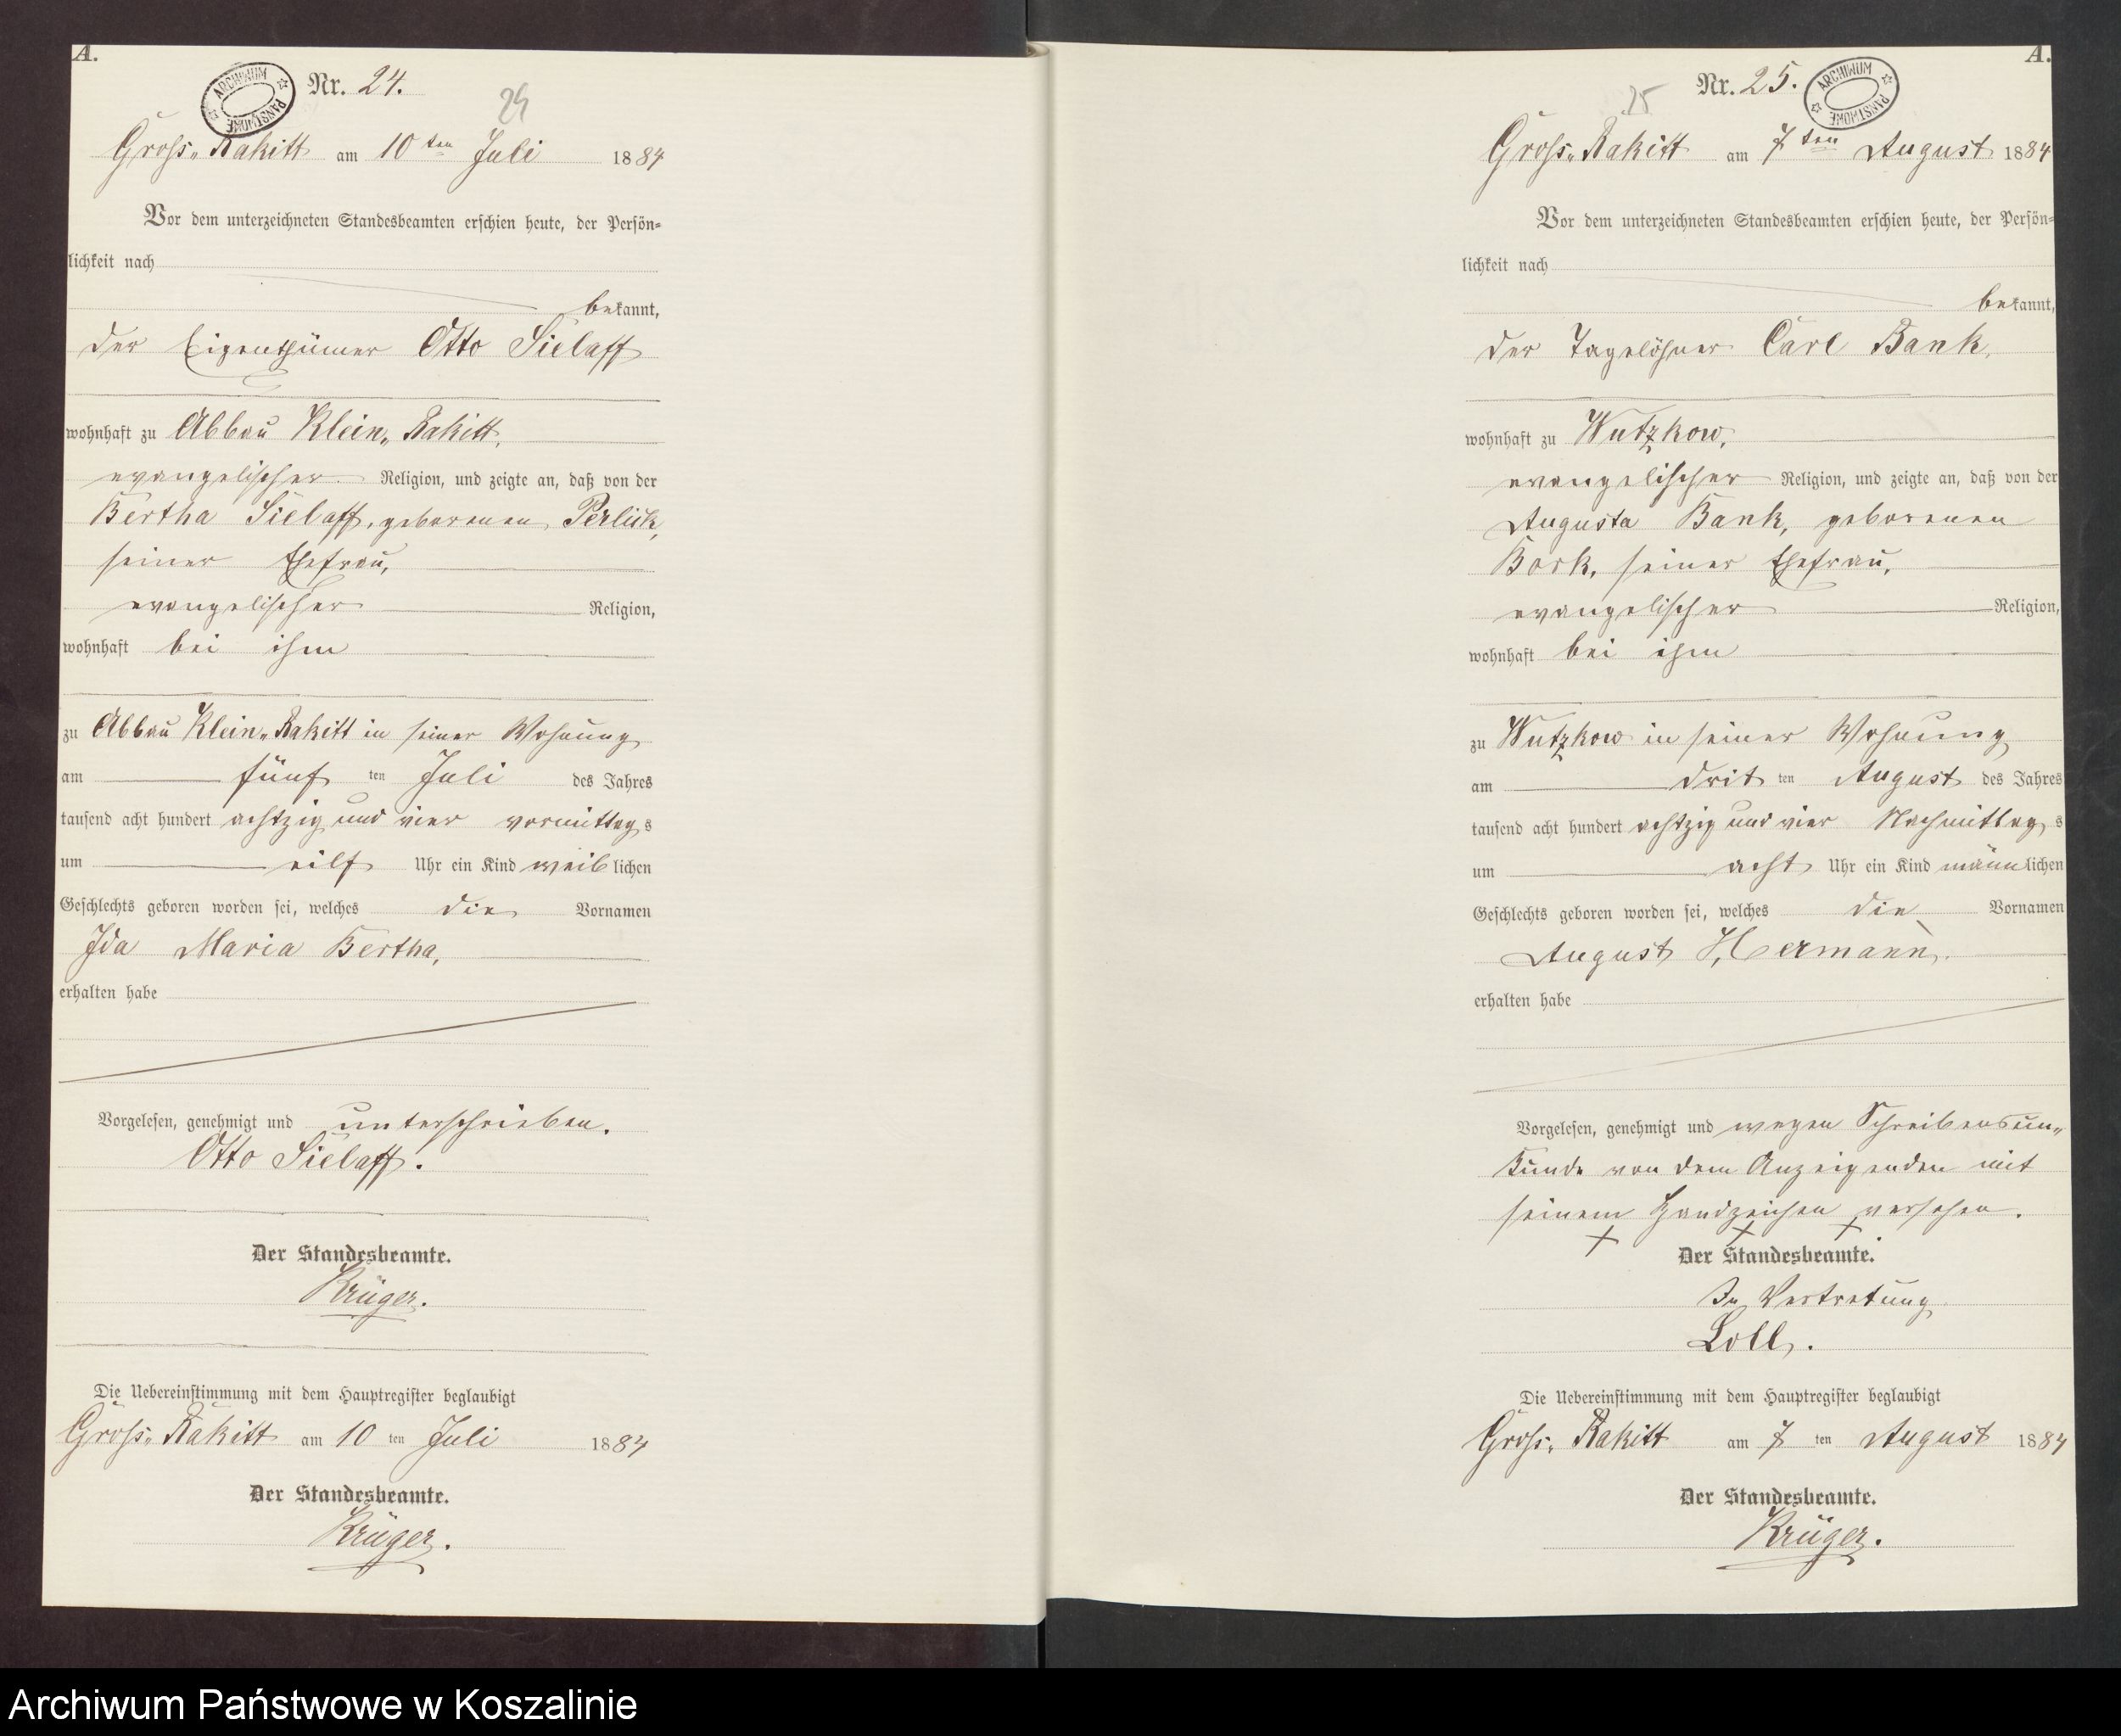 A.
ARCHIWUM PAŃSTWOWE
Nr. 24.
24
Gross-Rakitt am 10ten Juli 1884
Vor dem unterzeichneten Standesbeamten erschien heute, der Persön-
lichkeit nach
bekannt,
der Eigenthümer Otto Sielaff
wohnhaft zu Abbau Klein-Rakitt,
evangelischer Religion, und zeigte an, daß von der
Bertha Sielaff, geborenen Perlick,
seiner Ehefrau,
evangelischer Religion,
wohnhaft bei ihm
zu Abbau Klein-Rakitt in seiner Wohnung
am fünf ten Juli des Jahres
tausend acht hundert achtzig und vier vormittags
um eilf Uhr ein Kind weiblichen
Geschlechts geboren worden sei, welches die Vornamen
Ida Maria Bertha,
erhalten habe
Vorgelesen, genehmigt und unterschrieben.
Otto Sielaff.
Der Standesbeamte.
Krüger.
Die Uebereinstimmung mit dem Hauptregister beglaubigt
Gross-Rakitt am 10 ten Juli 1884
Der Standesbeamte.
Krüger.
A.
ARCHIWUM PAŃSTWOWE
Nr. 25.
25
Gross-Rakitt am 7ten August 1884
Vor dem unterzeichneten Standesbeamten erschien heute, der Persön-
lichkeit nach
bekannt,
der Tagelöhner Carl Bank,
wohnhaft zu Wutzkow,
evangelischer Religion, und zeigte an, daß von der
Augusta Bank, geborenen
Bork, seiner Ehefrau,
evangelischer Religion,
wohnhaft bei ihm
zu Wutzkow in seiner Wohnung
am drit ten August des Jahres
tausend acht hundert achtzig und vier Nachmittags
um acht Uhr ein Kind männlichen
Geschlechts geboren worden sei, welches die Vornamen
August Hermann,
erhalten habe
Vorgelesen, genehmigt und wegen Schreibensun-
kunde von dem Anzeigenden mit
seinem Handzeichen versehen.
+ + +
Der Standesbeamte.
In Vertretung
Loll.
Die Uebereinstimmung mit dem Hauptregister beglaubigt
Gross-Rakitt am 7 ten August 1884
Der Standesbeamte.
Krüger.
Archiwum Państwowe w Koszalinie